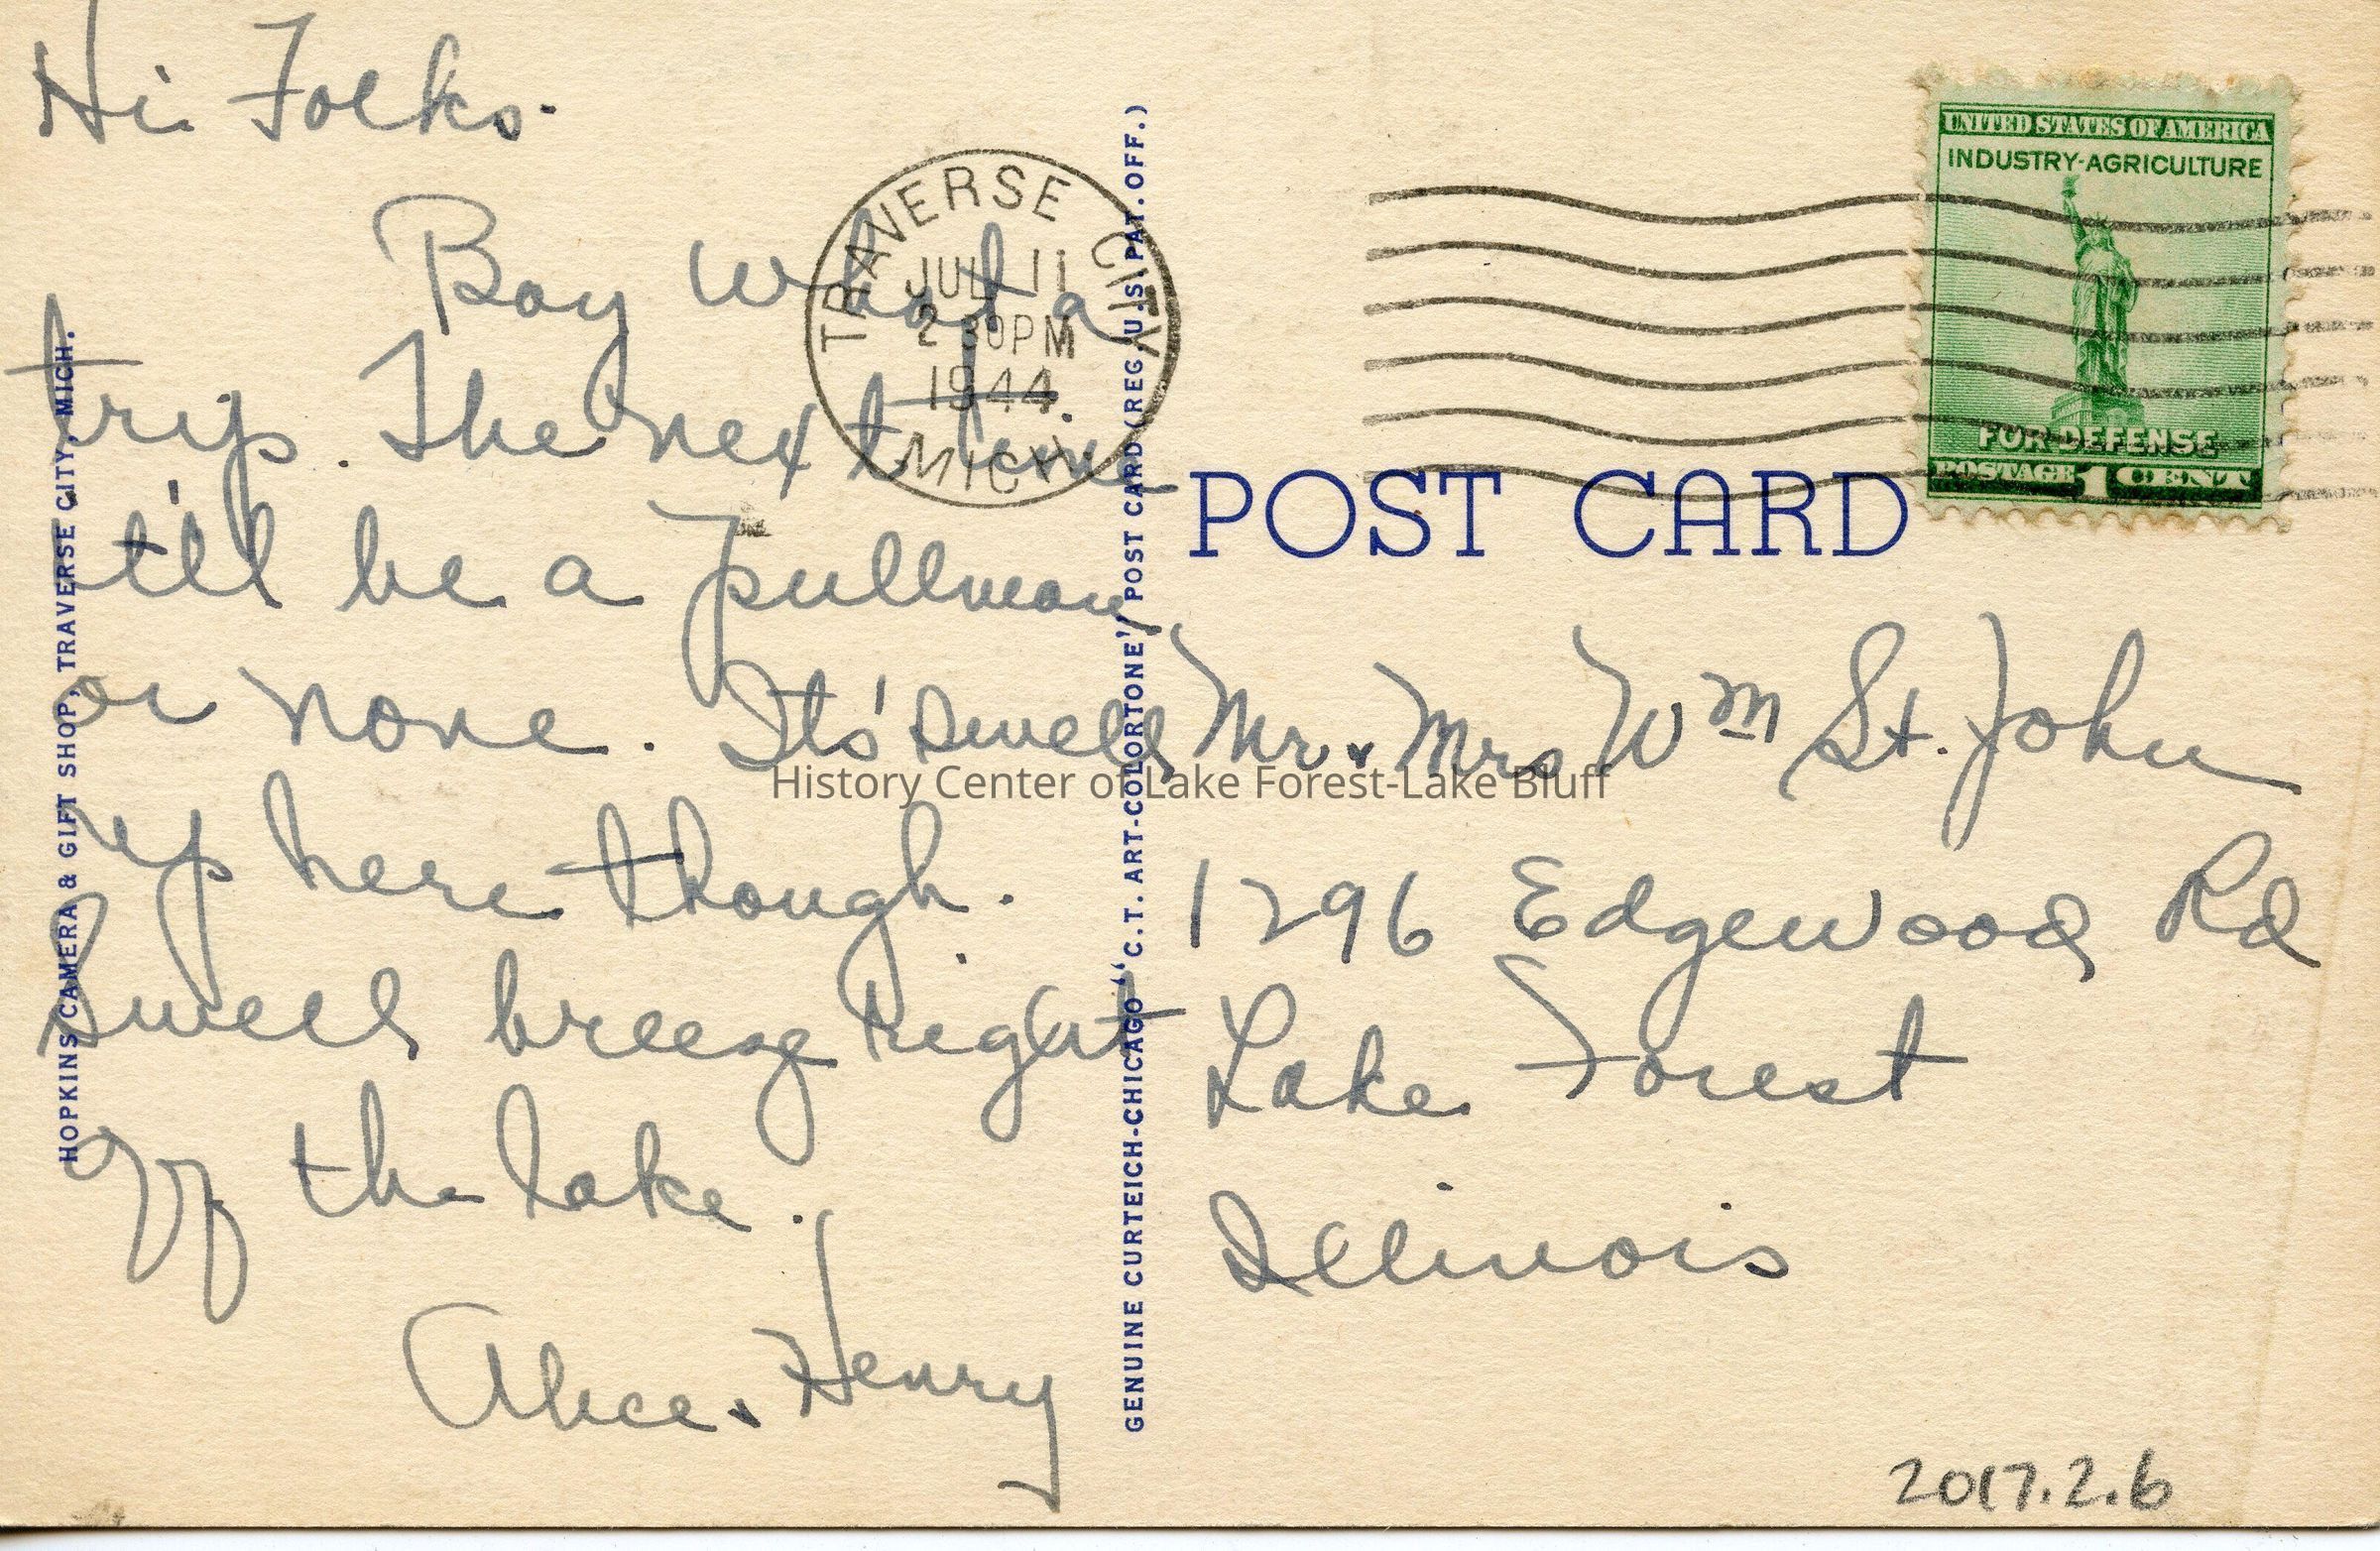 Hi Folks.
Boy what a
trip. The next time
it'll be a Pullman
or none. Its' swell
up here though.
Swell breeze right
off the lake.
Alice & Henry
HOPKINS CAMERA & GIFT SHOP, TRAVERSE CITY, MICH.
TRAVERSE CITY
JUL 11
2 30PM
1944
MICH.
GENUINE CURTEICH-CHICAGO "C.T. ART-COLORTONE" POST CARD (REG. U.S. PAT. OFF.)
UNITED STATES OF AMERICA
INDUSTRY-AGRICULTURE
FOR DEFENSE
POSTAGE 1 CENT
POST CARD
Mr & Mrs Wm St. John
1296 Edgewood Rd
Lake Forest
Illinois
History Center of Lake Forest-Lake Bluff
2017.2.6